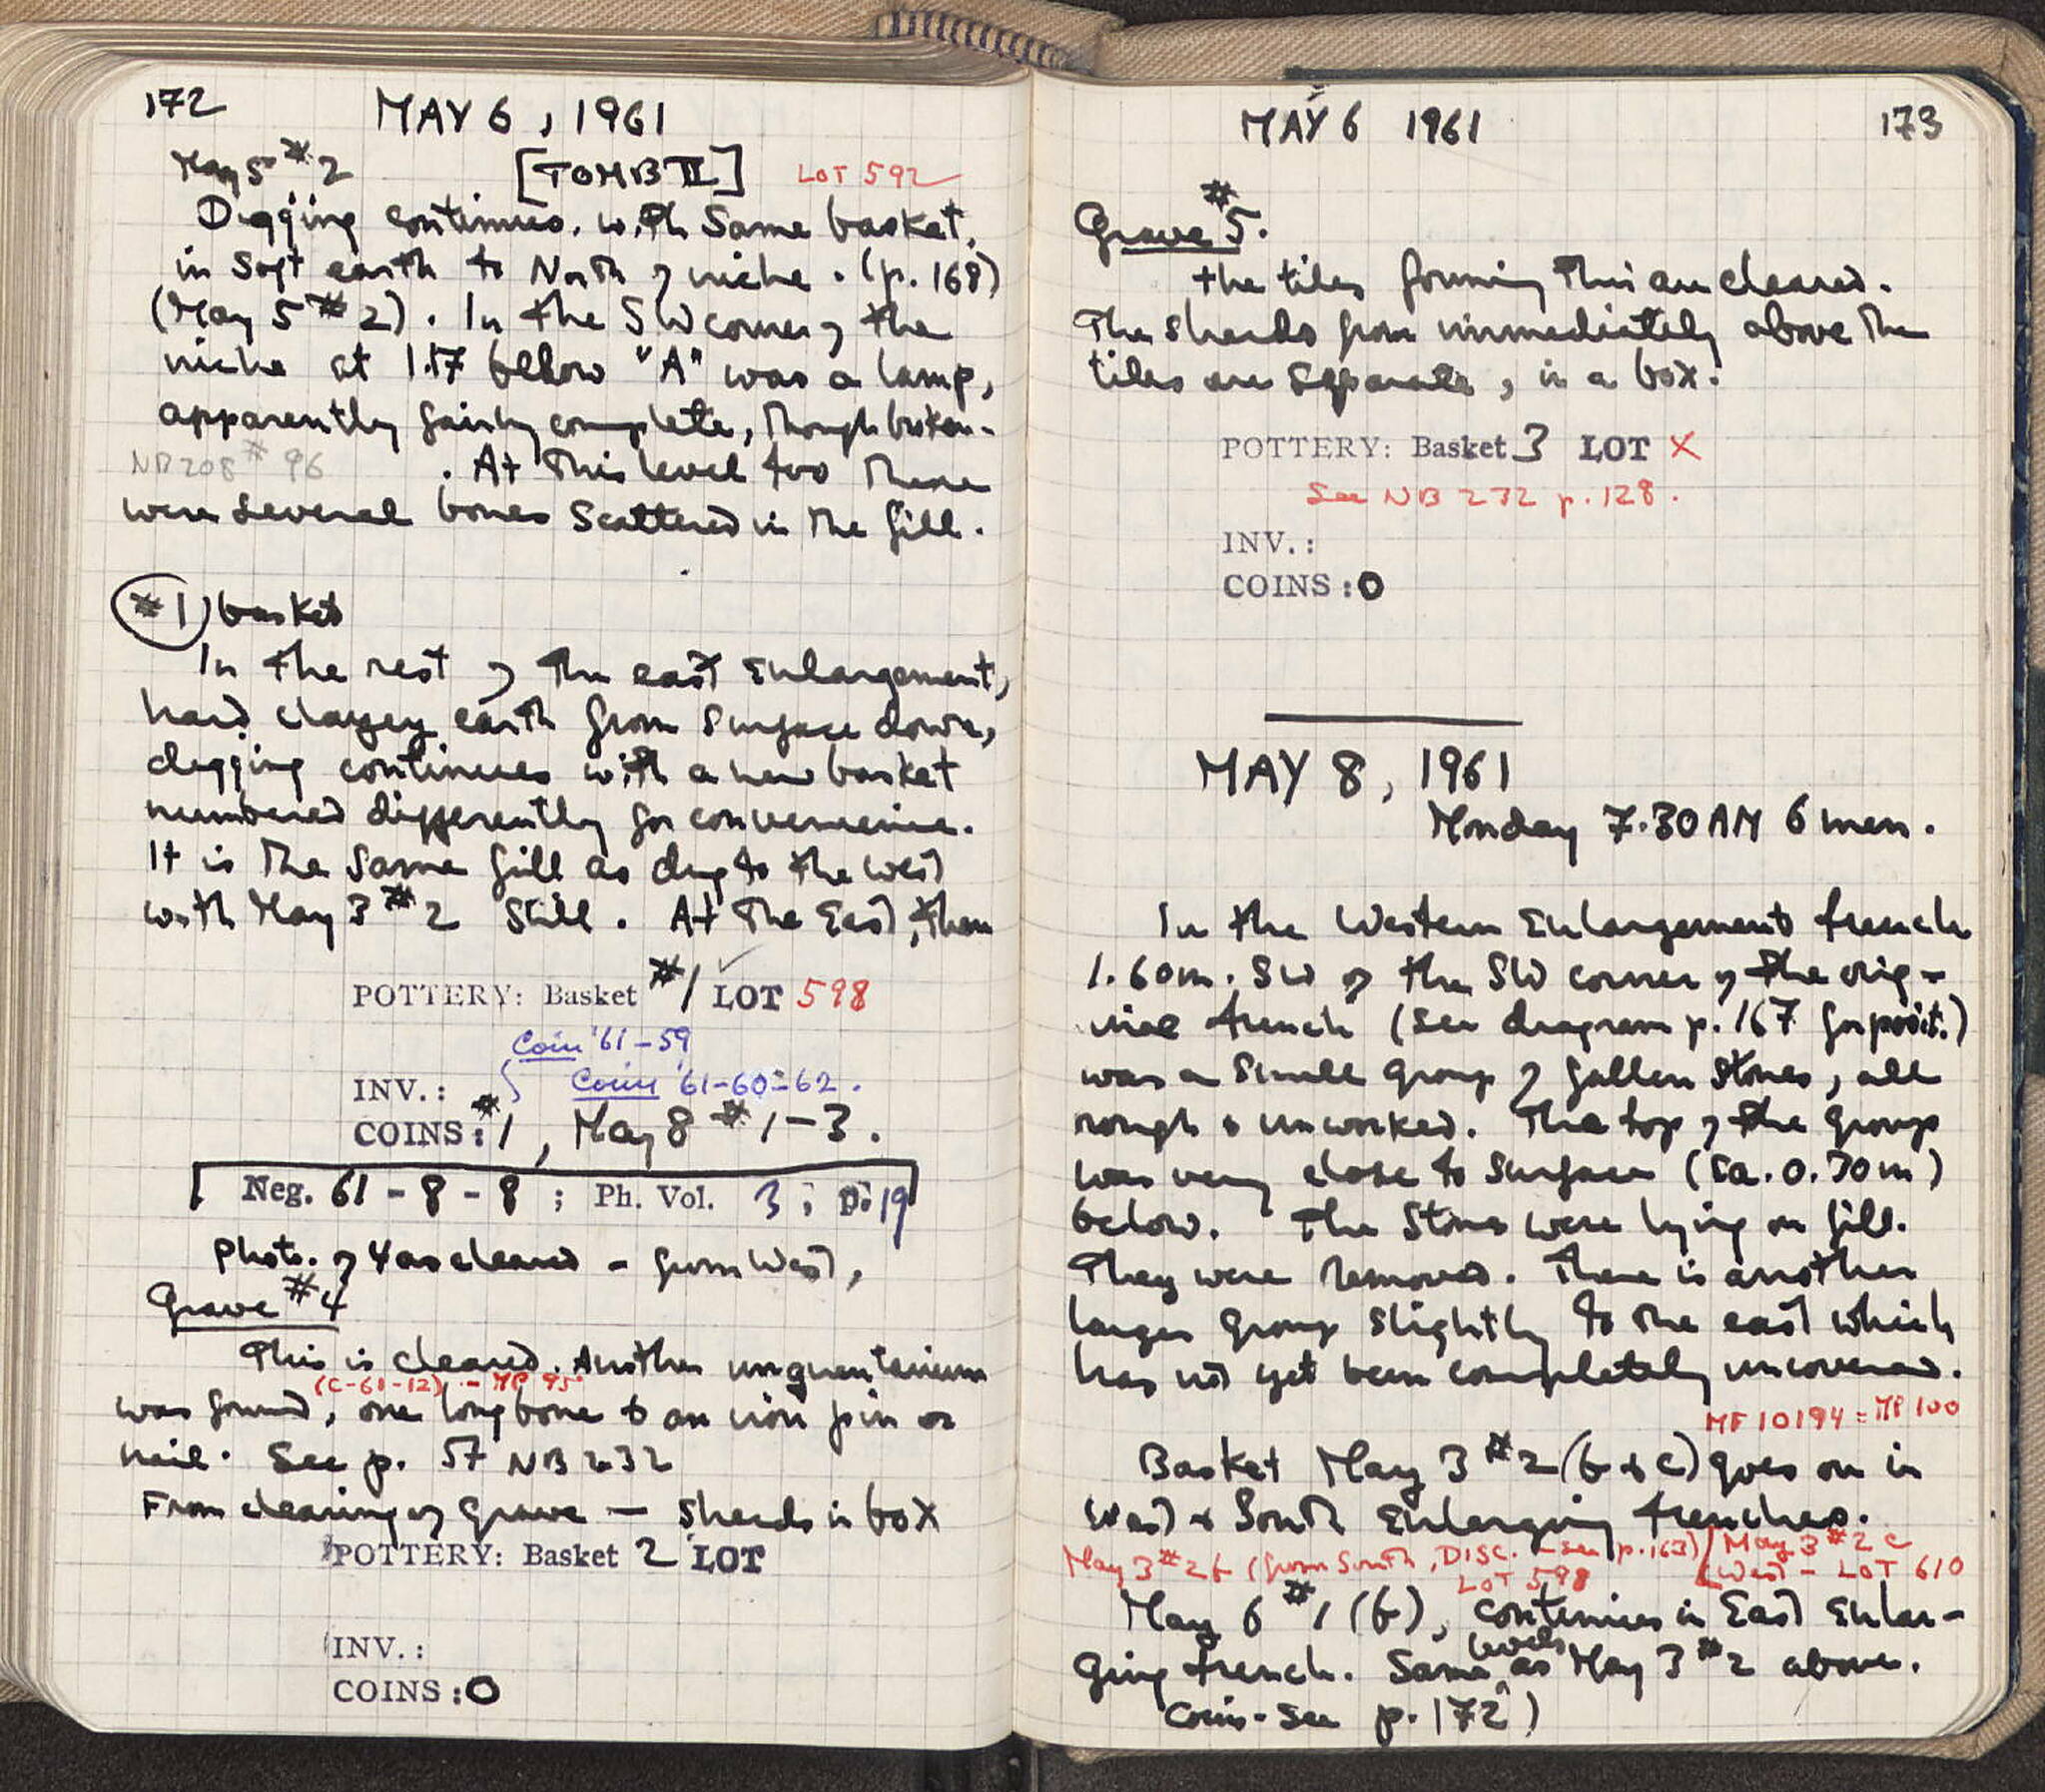 172
MAY 6, 1961
May 5 #2 [TOMB II] LOT 592
Digging continues. with Same basket,
in soft earth to North of niche. (p. 168)
(May 5 #2). In the SW corner of the
niche at 1.17 bellow "A" was a lamp,
apparently fairly complete, though broken.
NB 208 # 96 . At this level too there
were several bones scattered in the fill.
#1 basket
In the rest of the east Enlargement,
hard clayey earth from surface down,
digging continues with a new basket
numbered differently for convenience.
It is the same fill as dug to the West
with May 3 #2 still. At the East, then
POTTERY: Basket #1 LOT 598
Coin '61-59
INV.: Coins '61-60-62.
COINS: #1, May 8 #1-3.
Neg. 61-8-8; Ph. Vol. 3; P. 19
Photo. of 4 as cleared - from West,
Grave #4
This is cleared. Another unguentarium
(C-61-12) - MP 95
was found, one long bone & an iron pin or
nail. See p. 57 NB 232
From clearing of grave - sherds in box
POTTERY: Basket 2 LOT
INV.:
COINS: 0
MAY 6 1961
173
Grave #5.
the tiles forming this are cleared.
The sherds from immediately above the
tiles are separate, in a box.
POTTERY: Basket 3 LOT X
See NB 232 p. 128.
INV.:
COINS: 0
MAY 8, 1961
Monday 7.30 AM 6 men.
In the Western Enlargement trench
1.60m. SW of the SW corner of the orig-
inal trench (see diagram p. 167 for posit.)
was a small group of fallen stones, all
rough & unworked. The top of the group
was very close to surface (ca. 0.30m)
below. The stones were lying on fill.
They were removed. There is another
larger group slightly to the east which
has not yet been completely uncovered.
MF 10194 = MP 100
Basket May 3 #2 (b & c) goes on in
West & South Enlarging trenches.
May 3 #2b (from South, DISC. - see p. 163) / May 3 #2c
LOT 598 (West) - LOT 610
May 6 #1 (b), continues in East Enlar-
ging trench. Same levels as May 3 #2 above.
Coins - see p. 172)